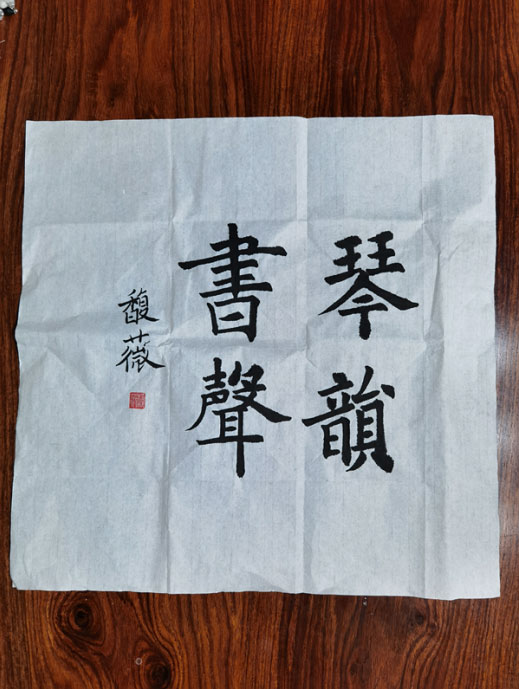 琴韻
書聲
馥薇